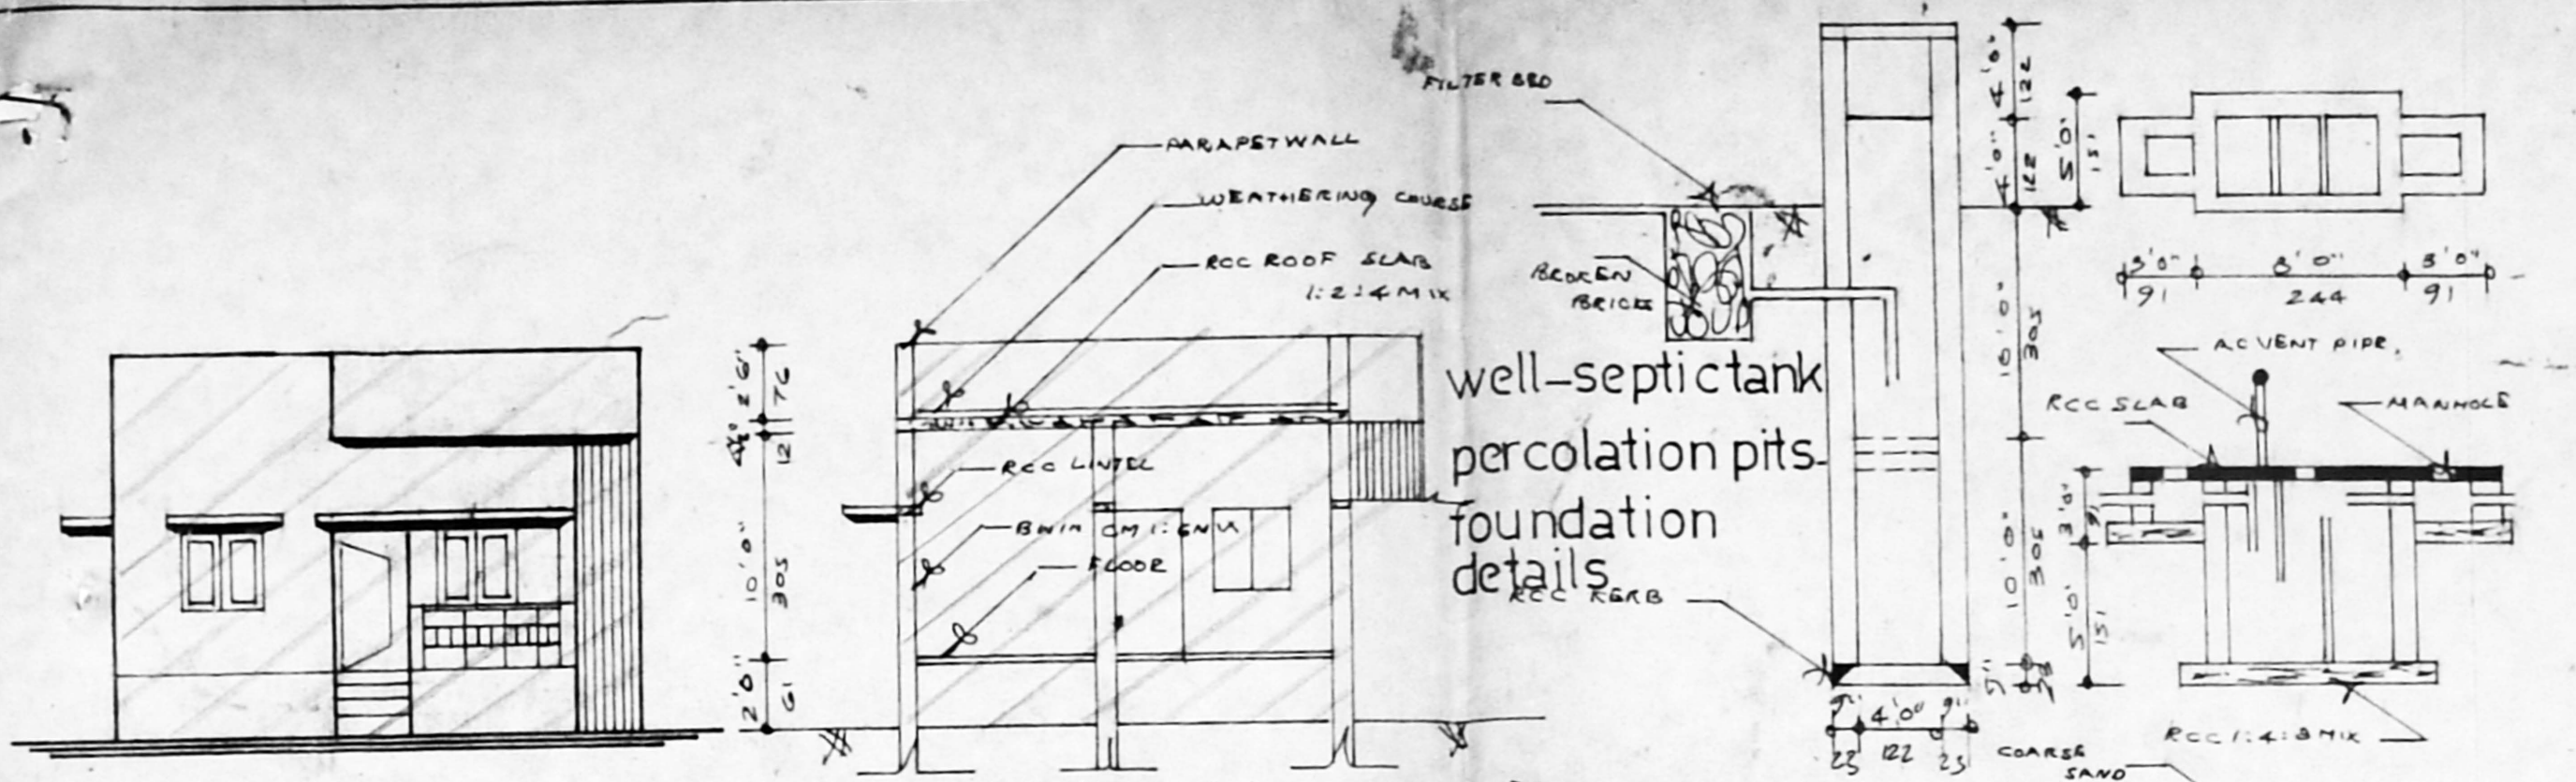 PARAPETWALL
WEATHERING COURSE
RCC ROOF SLAB
1:2:4 MIX
2'6"
76
12
10'0"
305
2'0"
61
RCC LINTEL
FLOOR
FILTER BED
BROKEN
BRICKS
well-septictank
percolation pits-
foundation
details
RCC KERB
4'0"
122
4'0"
122
10'0"
305
10'0"
305
9"
23
9"
4'0"
9"
23
122
23
5'0"
151
3'0"
8'0"
3'0"
91
244
91
AC VENT PIPE.
RCC SLAB
MANHOLE
3'0"
91
5'0"
151
RCC 1:4:8 MIX
COARSE
SAND